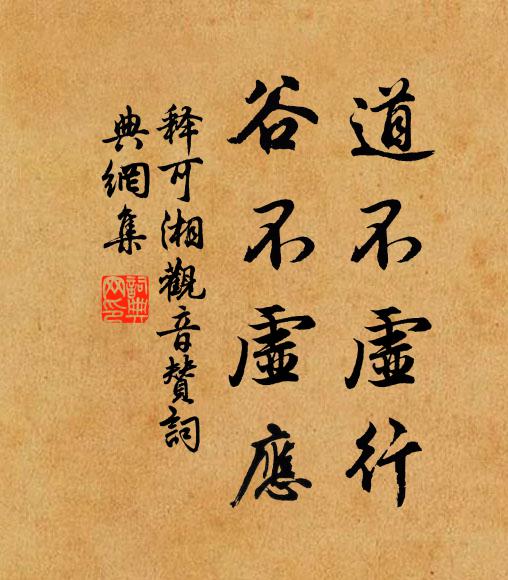 道不虛行
谷不虛應
釋可湘觀音贊詞
典網集
詞典
網印